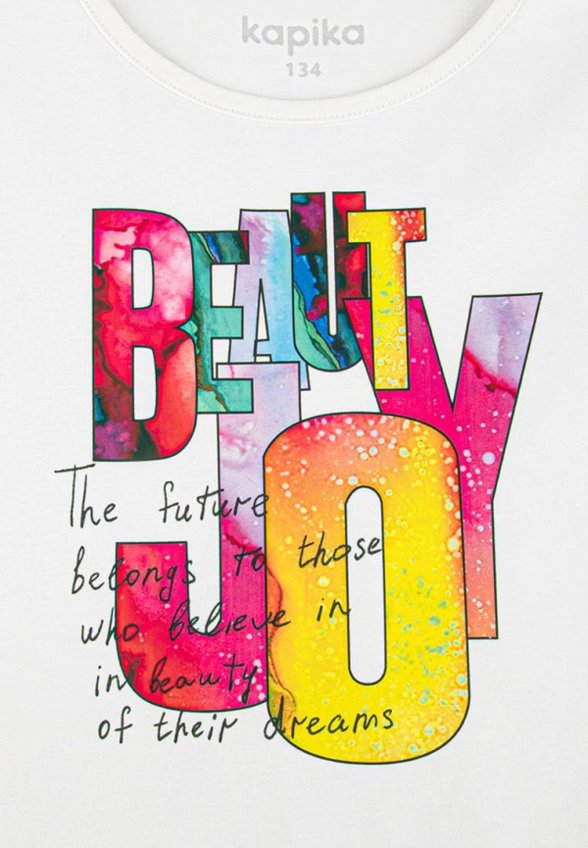 kapika
134
BEAUTY
JOY
The future
belongs to those
who believe in
in beauty
of their dreams